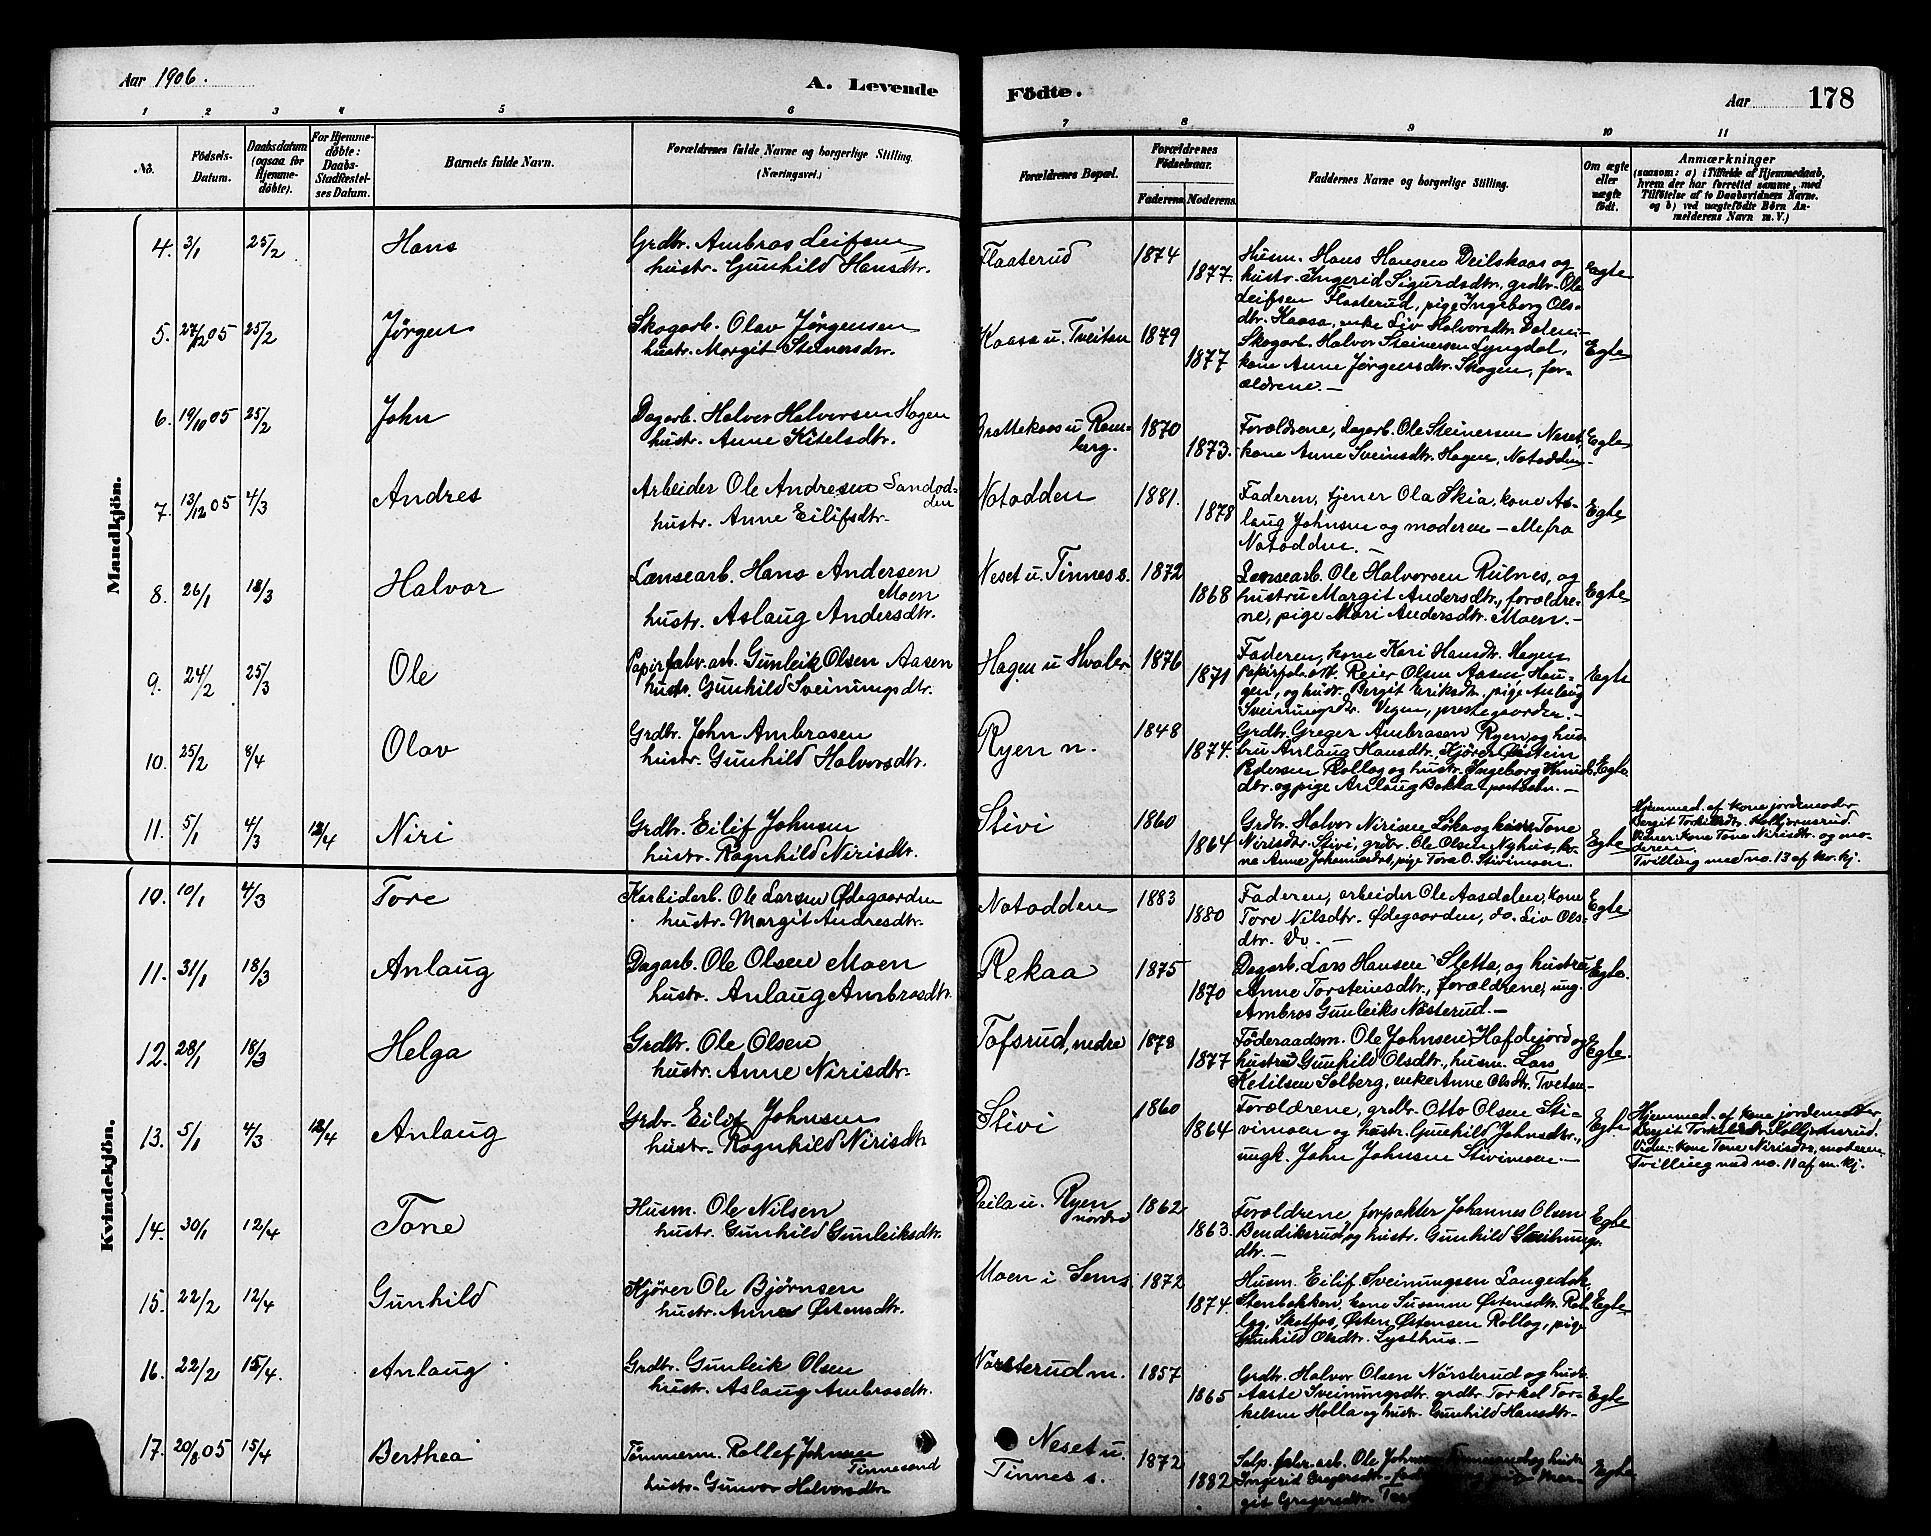 Aar 1906.
A. Levende
Födte.
Aar 178
1 2 3 4 5 6 7 8 9 10 11
No.
Födsels-
Datum.
Daabsdatum
(ogsaa for
Hjemme-
döbte).
For Hjemme-
døbte:
Daabs-
Stadfæstel-
ses Datum.
Barnets fulde Navn.
Forældrenes fulde Navne og borgerlige Stilling.
(Næringsvei.)
Forældrenes Bopæl.
Forældrenes
Födselsaar.
Faderens. Moderens.
Faddernes Navne og borgerlige Stilling.
Om ægte
eller
uægte
født.
Anmærkninger
(saasom: a) i Tilfælde af Hjemmedaab,
hvem der har forrettet samme, med
Tilföielse af to Daabsvidners Navne.
og b) ved uægtefödte Börn An-
melderens Navn m. V.)
Mandkjön.
4. 3/1 25/2 Hans
Grdbr. Ambros Leifsen
hustr. Gunhild Hansdtr.
Flaaterud 1874
1877.
Husm. Hans Hansen Deilskaas og
hustr. Ingerid Sigurdsdtr. grdbr. Ole
Leifsen Flaaterud, pige Ingeborg Ols-
dtr. Kaasa, enke Liv Halvorsdtr. Dalen.
Egte
5. 27/12 05 25/2 Jørgen
Skogarb. Olav Jørgensen
hustr. Margit Steinersdtr.
Kaasa u. Tveiten 1879
1877
Skogarb. Halvor Steinersen Lyngdal,
kone Anne Jørgensdtr. Skogen, for-
ældrene. —
Egte
6. 19/10 05 25/2 John
Dagarb. Halvor Halvorsen Hagen
hustr. Anne Kitelsdtr.
Brattekaas u Ram-
berg. 1870
1873.
Forældrene, dagarb. Ole Steinersen Neset,
kone Anne Sveinsdtr. Hagen, Notodden.
Egte
7. 13/12 05 4/3 Andres
Arbeider Ole Andresen Sandod-
den
hustr. Anne Eilifsdtr.
Notodden 1881.
1878
Faderen, tjener Ola Skia, kone As-
laug Johnsen og moderen — alle fra
Notodden. —
Egte
8. 26/1 18/3 Halvor
Lænsearb. Hans Andersen
Moen
hustr. Aslaug Andersdtr.
Neset u. Tinnes s. 1872
1868
Lænsearb. Ole Halvorsen Rulnes, og
hustru Margit Andersdtr., forældre-
ne, pige Mari Andersdtr. Moen. —
Egte
9. 24/2 25/3 Ole
Papirfabr. arb. Gunleik Olsen Aasen
hustr. Gunhild Sveinungsdtr.
Hagen u Hvaler 1876
1871
Faderen, kone Kari Hansdtr. Hagen
papirfab. arb. Reier Olsen Aasen, Hau-
gen, og hustr. Bergit Eriksdtr. pige Anlaug
Sveinungsdtr. Vegen, prestegaarden. —
Egte
10. 25/2 8/4 Olav
Grdbr. John Ambrosen
hustr. Gunhild Halvorsdtr.
Ryen n. 1848
1874.
Grdbr. Greger Ambrosen Ryen og hus-
tru Anlaug Hansdtr. Kjører Østein
Pedersen Rollag og hustr. Ingeborg Knuds-
dtr. og pige Anlaug Bakka —
Egte
11. 5/1 4/3 12/4 Niri
Grdbr. Eilif Johnsen
hustr. Ragnhild Nirisdtr.
Stivi 1860
1864
Grdbr. Halvor Nirisen Løka og hustr. Tone
Nirisdtr. Stivi, grdbr. Ole Olsen Nghus, ko-
ne Anne Johannesdtr, pige Tora O. Stivimoen.
Egte
Hjemmed. af kone jordemoder
Bergit Torkildsdtr. Kolbjørnsrud.
Vidner: kone Tone Nirisdtr. og mo-
deren.
Tvilling med no. 13 af kv. kj.
Kvindekjön.
10. 10/1 4/3 Tore
Karbidarb. Ole Larsen Ødegaarden
hustr. Margit Andresdtr.
Notodden 1883
1880
Faderen, arbeider Ole Aasdalen, kone
Tore Nilsdtr. Ødegaarden, do. Liv Ols-
dtr. Do. —
Egte
11. 31/1 18/3 Anlaug
Dagarb. Ole Olsen Moen
hustr. Anlaug Ambrosdtr.
Rekaa 1875
1870
Dagarb. Lars Hansen Sletta, og hustru
Anne Torsteinsdtr., forældrene, ung.
Ambros Gunleiks Nøsterud. —
Egte.
12. 28/1 18/3 Helga
Grdbr. Ole Olsen
hustr. Anne Nirisdtr.
Tofsrud, nedre 1878
1877
Föderaadsm. Ole Johnsen Hafdejord og
hustru Gunhild Olsdtr., husm. Lars
Ketilsen Solberg, enke Anne Olsdtr. Tvetan —
Egte.
13. 5/1 4/3 12/4 Anlaug
Grdbr. Eilif Johnsen
hustr. Ragnhild Nirisdtr
Stivi 1860
1864
Forældrene, grdbr. Otto Olsen Sti-
vimoen og hustr. Gunhild Johnsdtr.,
ungk. John Johnsen Stivimoen. —
Egte
Hjemmed. af kone jordemoder
Bergit Torkildsdtr. Kolbjørnsrud.
Vidn: kone Tone Nirisdtr, moderen
Tvilling med no. 11 af m. kj.
14. 30/1 12/4 Tone
Husm. Ole Nilsen
hustr. Gunhild Gunleiksdtr.
Deila u. Ryen
nordre 1862
1863.
Forældrene, forpakter Johannes Olsen
Bendiksrud, og hustr. Gunhild Sveinungs-
dtr. —
Egte
15. 22/2 12/4 Gunhild
Kjører Ole Bjørnsen
hustr. Anne Østensdtr.
Moen i Sems 1872
1874.
Husm. Eilif Sveinungsen Langedok
Stenbakken, kone Susanne Østensdtr. Rol-
lag, Skotfos, Østen Østensen Rollag, pige
Gunhild Olsdtr. Lysthus. —
Egte
16. 22/2 15/4. Anlaug
Grdbr. Gunleik Olsen
hustr. Aslaug Ambrosdtr.
Nørsterud m. 1857
1865
Grdbr. Halvor Olsen Nørsterud og hustr.
Aaste Sveinungsdtr. grdbr. Torkel Tor-
kelsen Holla og hustr. Gunhild Hansdtr.
Egte
17. 20/8 05 15/4 Berthea
Tømmerm. Rollef Johnsen
Tinnesand
hustr. Gunvor Halvorsdtr.
Neset u.
Tinnes s. 1872
1882
Salp. fabr. arb. Ole Johnsen og hustr.
Ingerid Gregersdtr. Mar-
git Gregersdtr.
Egte